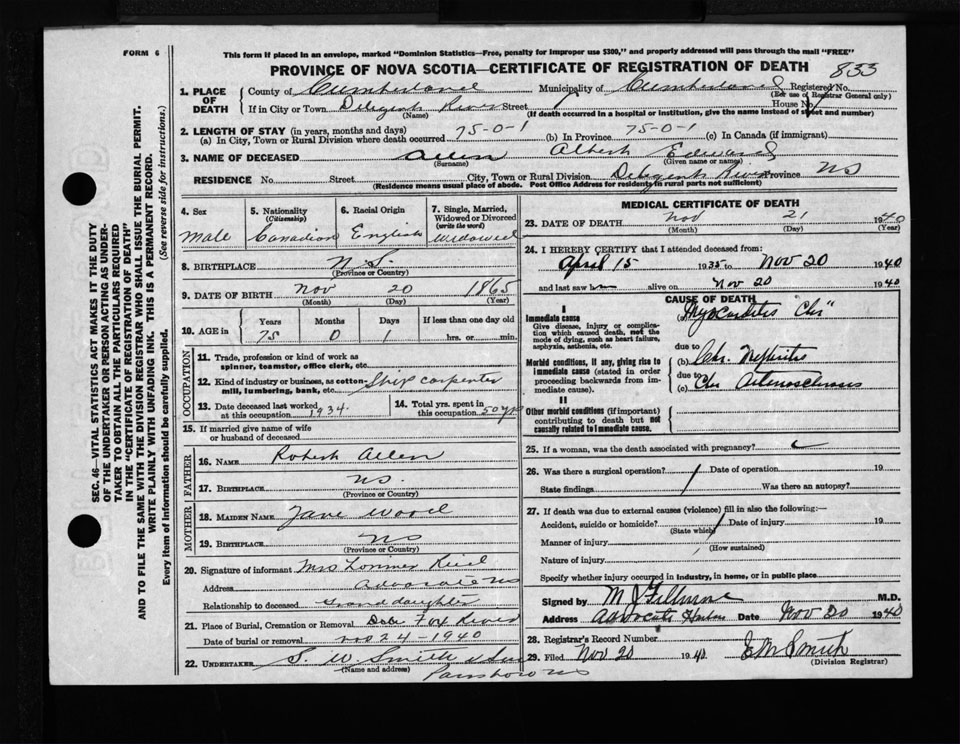 FORM 6
This form if placed in an envelope, marked "Dominion Statistics—Free, penalty for improper use $300," and properly addressed will pass through the mail "FREE"
PROVINCE OF NOVA SCOTIA—CERTIFICATE OF REGISTRATION OF DEATH 833
1. PLACE OF DEATH
County of Cumberland Municipality of Cumberland Registered No.
(For use of Registrar General only)
If in City or Town Diligent River Street House No.
(Name) (If death occurred in a hospital or institution, give the name instead of street and number)
2. LENGTH OF STAY (in years, months and days)
(a) In City, Town or Rural Division where death occurred 75-0-1 (b) In Province 75-0-1 (c) In Canada (if immigrant)
3. NAME OF DECEASED Allen Albert Edward
(Surname) (Given name or names)
RESIDENCE No. Street City, Town or Rural Division Diligent River Province NS
(Residence means usual place of abode. Post Office Address for residents in rural parts not sufficient)
4. Sex
Male
5. Nationality
(Citizenship)
Canadian
6. Racial Origin
English
7. Single, Married, Widowed or Divorced
(write the word)
Widowed
8. BIRTHPLACE N.S.
(Province or Country)
9. DATE OF BIRTH Nov 20 1865
(Month) (Day) (Year)
10. AGE in
Years Months Days If less than one day old
75 0 1 hrs. or min.
OCCUPATION
11. Trade, profession or kind of work as
spinner, teamster, office clerk, etc.
12. Kind of industry or business, as cotton-
mill, lumbering, bank, etc. Ship carpenter
13. Date deceased last worked
at this occupation 1934.
14. Total yrs. spent in
this occupation 50 yrs
15. If married give name of wife
or husband of deceased
FATHER
16. NAME Robert Allen
17. BIRTHPLACE NS.
(Province or Country)
MOTHER
18. MAIDEN NAME Jane Wood
19. BIRTHPLACE NS
(Province or Country)
20. Signature of informant Mrs
Address Advocate NS
Relationship to deceased Granddaughter
21. Place of Burial, Cremation or Removal Fox River
Date of burial or removal Nov 24-1940
22. UNDERTAKER S. W. Smith & Son
(Name and address)
Parrsboro NS
MEDICAL CERTIFICATE OF DEATH
23. DATE OF DEATH Nov 21 1940
(Month) (Day) (Year)
24. I HEREBY CERTIFY that I attended deceased from:
April 15 1935 to Nov 20 1940
and last saw him alive on Nov 20 1940
CAUSE OF DEATH
I
Immediate cause
Give disease, injury or complica-
tion which caused death, not the
mode of dying, such as heart failure,
asphyxia, asthenia, etc.
(a) Myocarditis "Chr"
due to
Morbid conditions, if any, giving rise to
immediate cause (stated in order
proceeding backwards from im-
mediate cause).
(b) Chr. Nephritis
due to
(c) Chr Arteriosclerosis
II
Other morbid conditions (if important)
contributing to death but not
causally related to immediate cause.
25. If a woman, was the death associated with pregnancy?
26. Was there a surgical operation? Date of operation 19
State findings Was there an autopsy?
27. If death was due to external causes (violence) fill in also the following:—
Accident, suicide or homicide? Date of injury 19
(State which)
Manner of injury
(How sustained)
Nature of injury
Specify whether injury occurred in industry, in home, or in public place
Signed by M.D.
Address Advocate Harbour Date Nov 20 1940
28. Registrar's Record Number
29. Filed Nov 20 1940 Smith
(Division Registrar)
SEC. 46—VITAL STATISTICS ACT MAKES IT THE DUTY
OF THE UNDERTAKER OR PERSON ACTING AS UNDER-
TAKER TO OBTAIN ALL THE PARTICULARS REQUIRED
IN THE "CERTIFICATE OF REGISTRATION OF DEATH"
AND TO FILE THE SAME WITH THE DIVISION REGISTRAR WHO SHALL ISSUE THE BURIAL PERMIT.
WRITE PLAINLY WITH UNFADING INK. THIS IS A PERMANENT RECORD.
Every item of information should be carefully supplied. (See reverse side for instructions.)